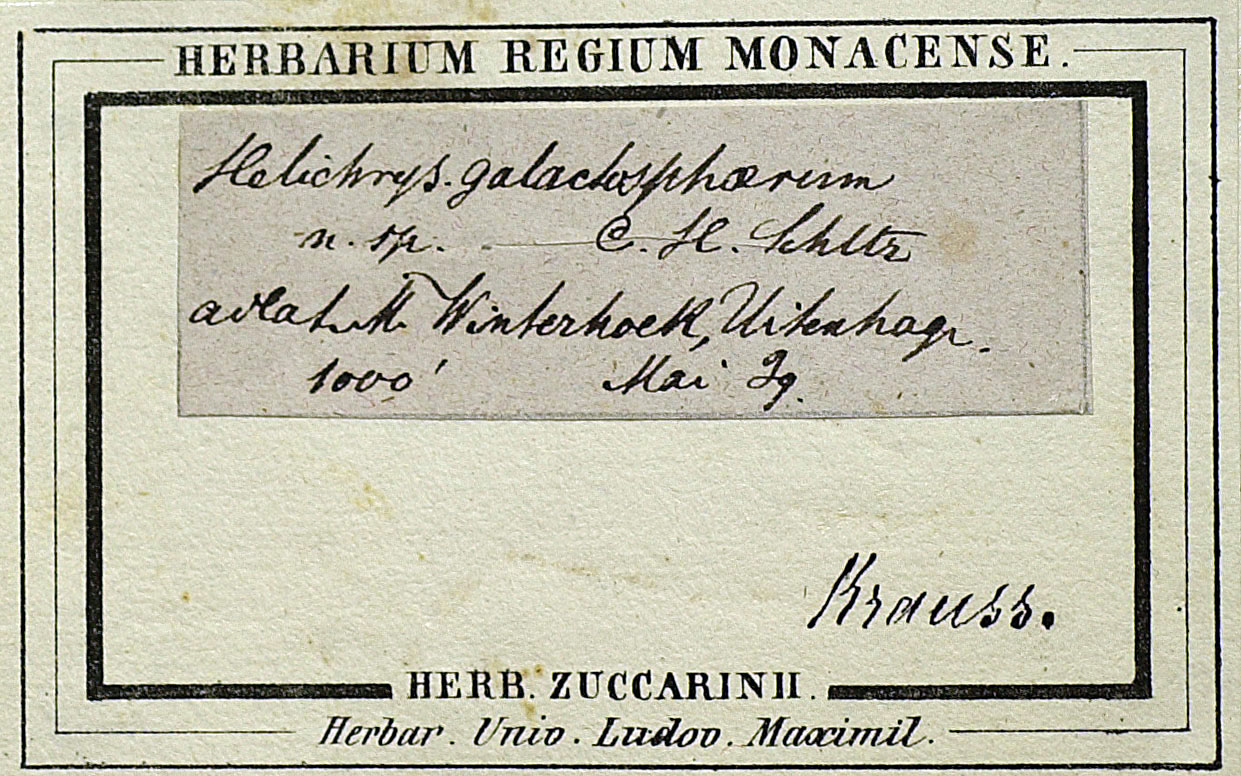 HERBARIUM REGIUM MONACENSE.
Helichrys. galactosphærum
n. sp. — C. H. Schltz
ad lat. M. Winterhoek, Uitenhag.
1000' Mai 39.
Krauss.
HERB. ZUCCARINII.
Herbar. Univ. Ludov. Maximil.